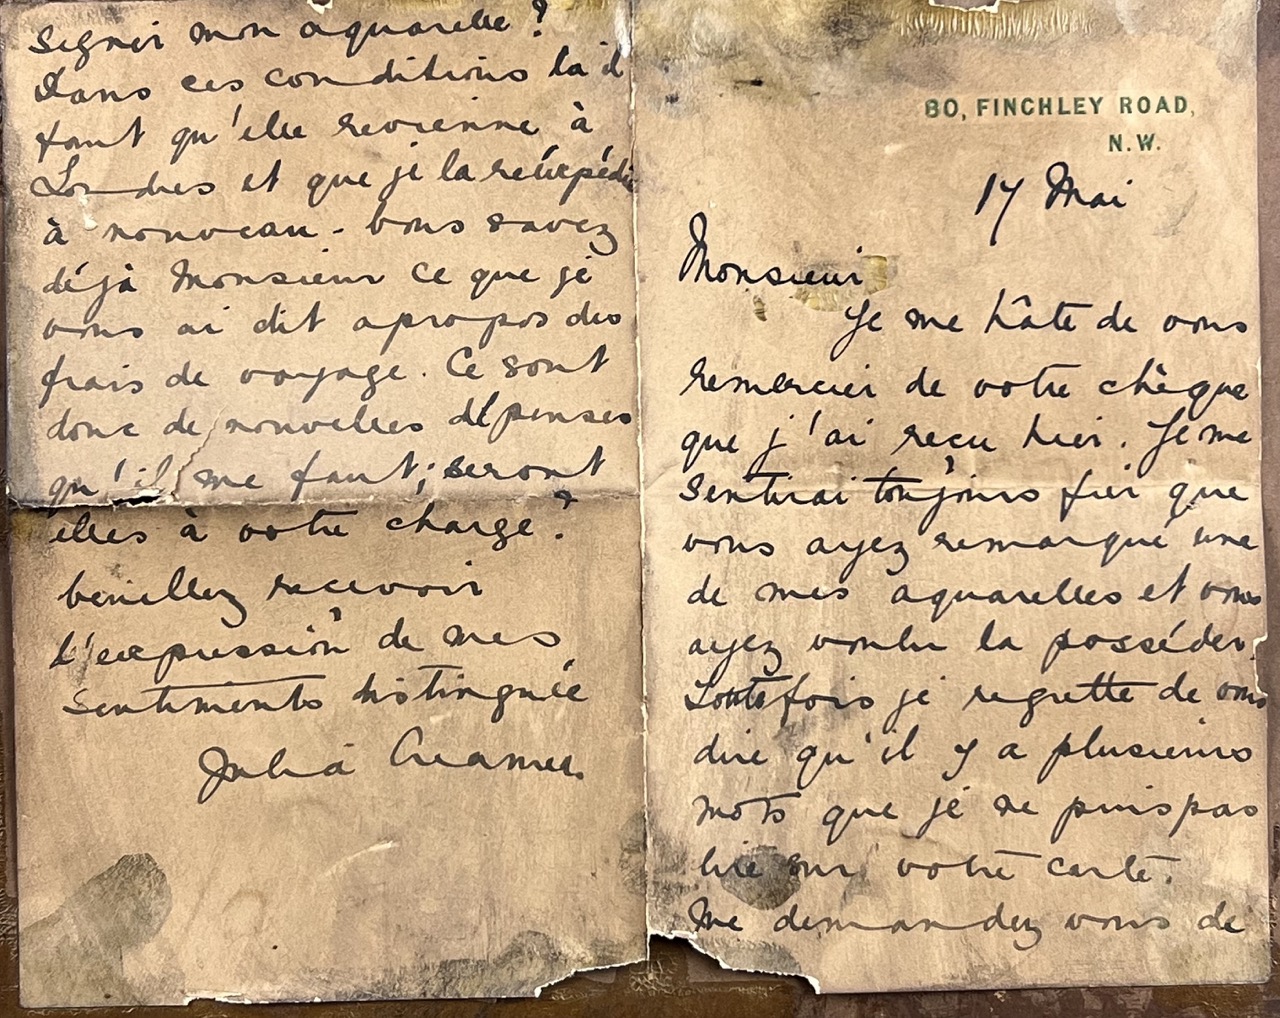 80, FINCHLEY ROAD,
N.W.
17 Mai
Monsieur
Je me hâte de vous
remercier de votre chèque
que j'ai recu hier. Je me
sentirai toujours fier que
vous ayez remarqué une
de mes aquarelles et vous
ayez voulu la posséder.
Toutefois je regrette de vous
dire qu'il y a plusieurs
mots que je ne puis pas
lire sur votre carte.
Me demandez vous de
signer mon aquarelle?
Dans ces conditions la il
faut qu'elle revienne à
Londres et que je la
à nouveau - vous savez
déjà Monsieur ce que je
vous ai dit apropos des
frais de voyage. Ce sont
donc de nouvelles dépenses
qu'il me faut; seront
elles à votre charge?
Veuillez recevoir
l'expression de mes
sentiments distingués
Julia Creamer.